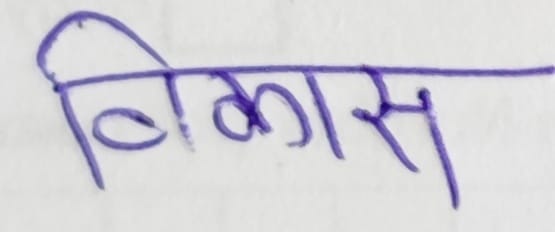 विकास